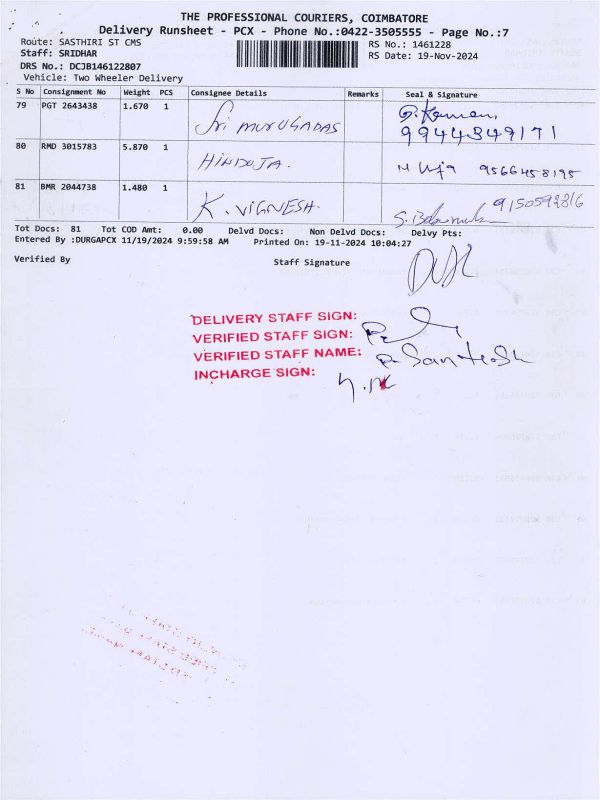 THE PROFESSIONAL COURIERS, COIMBATORE
Delivery Runsheet - PCX - Phone No.:0422-3505555 - Page No.:7
Route: SASTHIRI ST CMS
RS No.: 1461228
Staff: SRIDHAR
RS Date: 19-Nov-2024
DRS No.: DCJB146122807
Vehicle: Two Wheeler Delivery
S No Consignment No Weight PCS Consignee Details Remarks Seal & Signature
79 PGT 2643438 1.670 1
Sri MURUGADAS
9944849171
80 RMD 3015783 5.870 1
HINDUJA.
9566458195
81 BMR 2044738 1.480 1
K. VIGNESH.
9150592816
Tot Docs: 81 Tot COD Amt: 0.00 Delvd Docs: Non Delvd Docs: Delvy Pts:
Entered By :DURGAPCX 11/19/2024 9:59:58 AM Printed On: 19-11-2024 10:04:27
Verified By Staff Signature
DELIVERY STAFF SIGN:
VERIFIED STAFF SIGN:
VERIFIED STAFF NAME: P. Santhosh
INCHARGE SIGN: